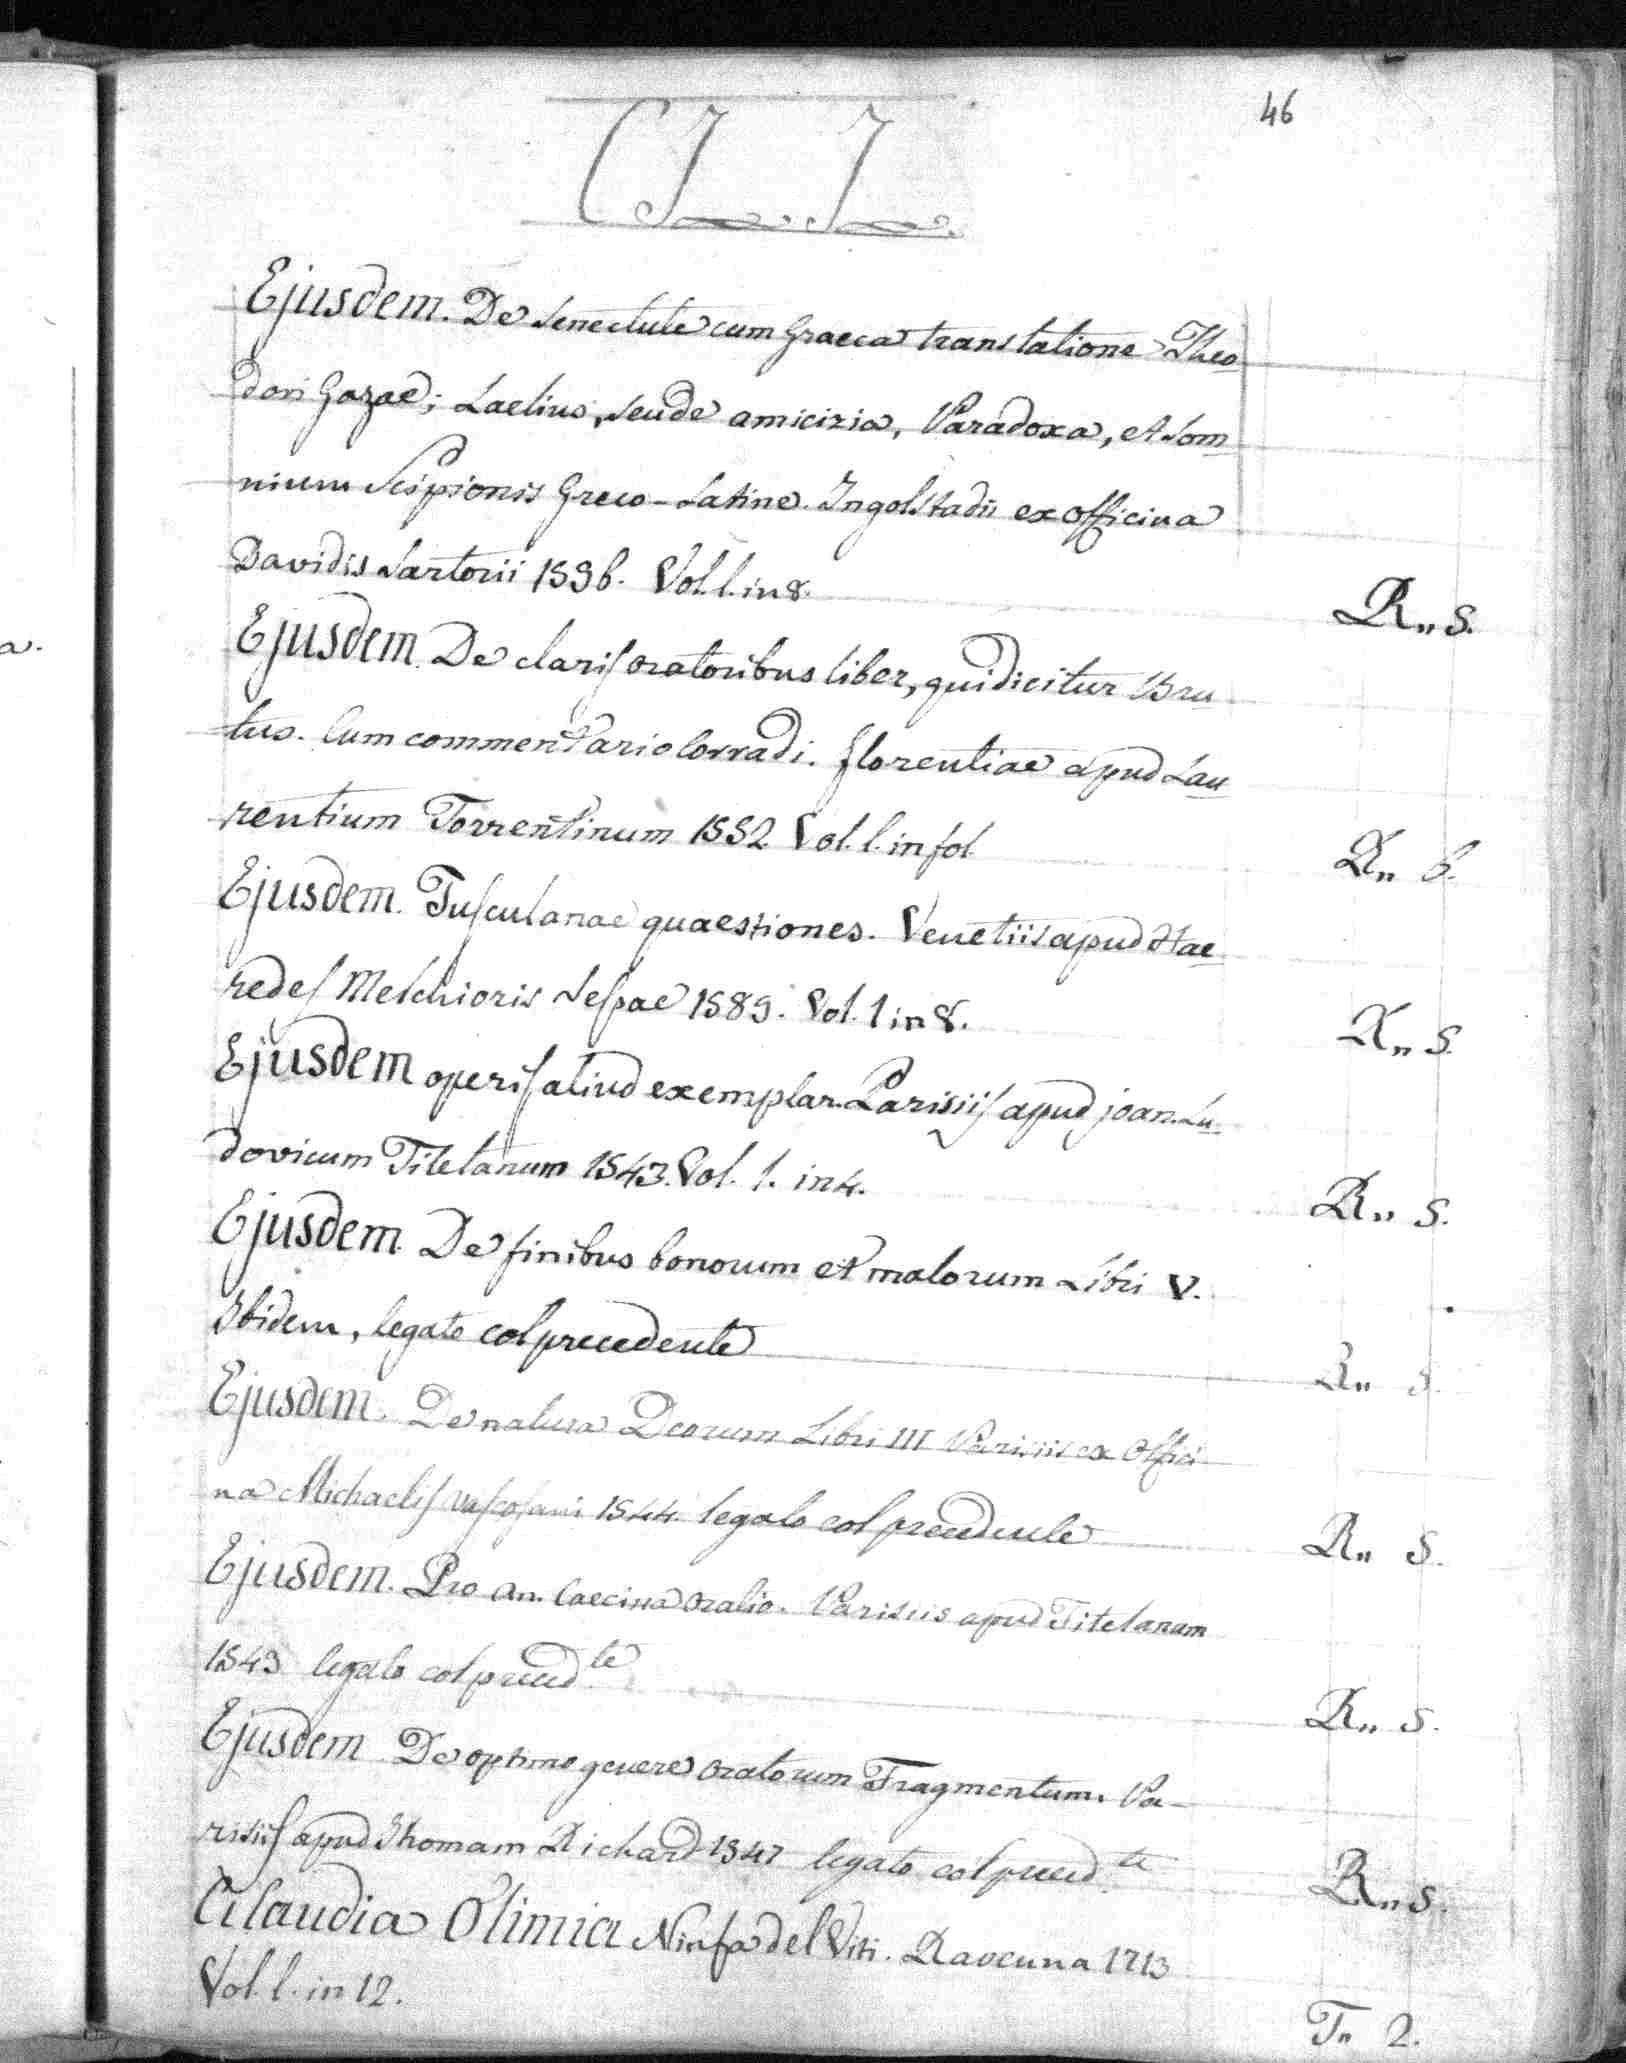 46
CI. I.
Ejusdem. De Senectute cum Graeca translatione Theo
dori Gazae; Laelius, seu de amicizia, Paradoxa, et Som
nium Scipionis Greco-Latine. Ingolstadii ex officina
Davidis Sartorii 1596. Vol. 1. in 8.
R„ 5.
Ejusdem. De claris oratoribus liber, qui dicitur Bru
tus. Cum commentario Corradi. florentiae apud Lau
rentium Torrentinum 1552 Vol. 1. in fol.
R„ 6.
Ejusdem. Tusculanae quaestiones. Venetiis apud Hae
redes Melchioris Sessae 1589. Vol. 1 in 8.
R„ 5.
Ejusdem operis aliud exemplar. Parisiis apud joan. Lu
dovicum Titetanum 1543. Vol. 1. in 4.
R„ 5.
Ejusdem. De finibus bonorum et malorum Libri V.
Ibidem, legato col precedente
R„ 5.
Ejusdem. De natura Deorum Libri III Parisiis ex Offici
na Michaelis Vascosani 1544. legato col precedente
R„ 5.
Ejusdem. Pro An. Caecina Oratio. Parisiis apud Titetanam
1543 legato col preced.te
R„ 5.
Ejusdem De optimo genere oratorum Fragmentum. Pa-
risiis apud Thomam Richard 1547 legato col preced.te
R„ 5.
Claudia Olimia Ninfa del Viti. Ravenna 1713
Vol. 1. in 12.
T„ 2.
a.